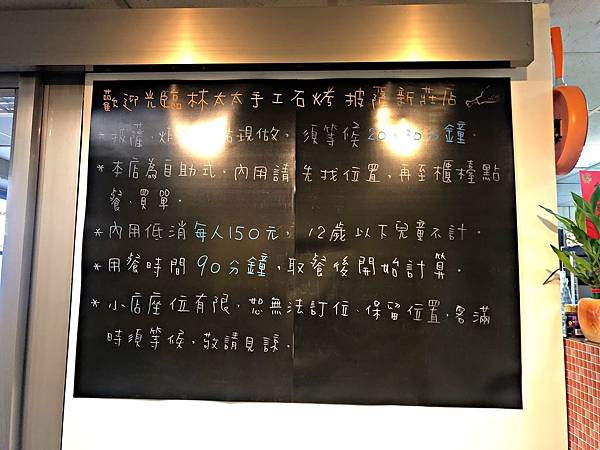 歡迎光臨林太太手工石烤披薩新莊店
*披薩,焗 現做,須等候20 30分鐘.
*本店為自助式,內用請先找位置,再至櫃檯點
餐、買單.
*內用低消每人150元,12歲以下兒童不計.
*用餐時間90分鐘,取餐後開始計算.
*小店座位有限,恕無法訂位、保留位置,客滿
時須等候,敬請見諒.